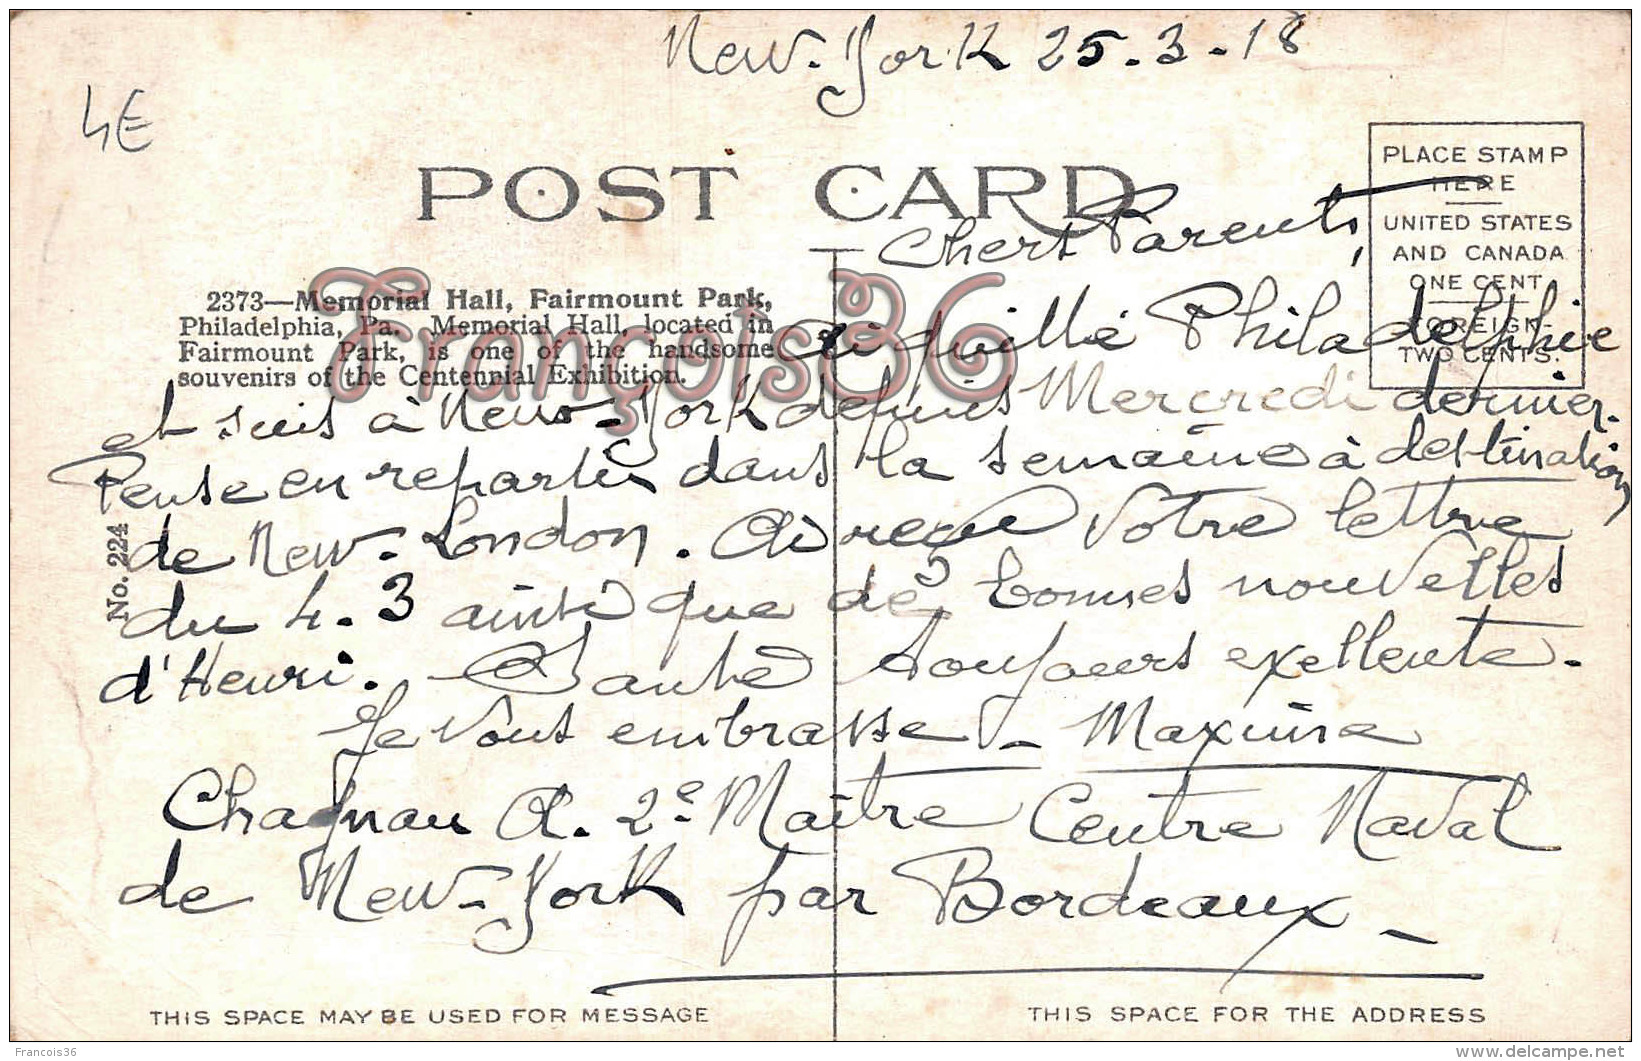 New-York 25.3-18
4E
POST CARD
PLACE STAMP
HERE
UNITED STATES
AND CANADA
ONE CENT
FOREIGN-
TWO CENTS.
2373—Memorial Hall, Fairmount Park,
Philadelphia, Pa. Memorial Hall, located in
Fairmount Park, is one of the handsome
souvenirs of the Centennial Exhibition.
François36
No. 224
Chers Parents,
Ai quitté Philadelphie
et suis à New-York depuis Mercredi dernier.
Pense en repartir dans la semaine à destination
de New-London. Ai reçu votre lettre
du 4.3 ainsi que de bonnes nouvelles
d'Henri. Santé toujours exellente.
Je vous embrasse - Maxime
Chagnau A. 2e Maître Centre Naval
de New-York par Bordeaux -
THIS SPACE MAY BE USED FOR MESSAGE
THIS SPACE FOR THE ADDRESS
Francois36
www.delcampe.net